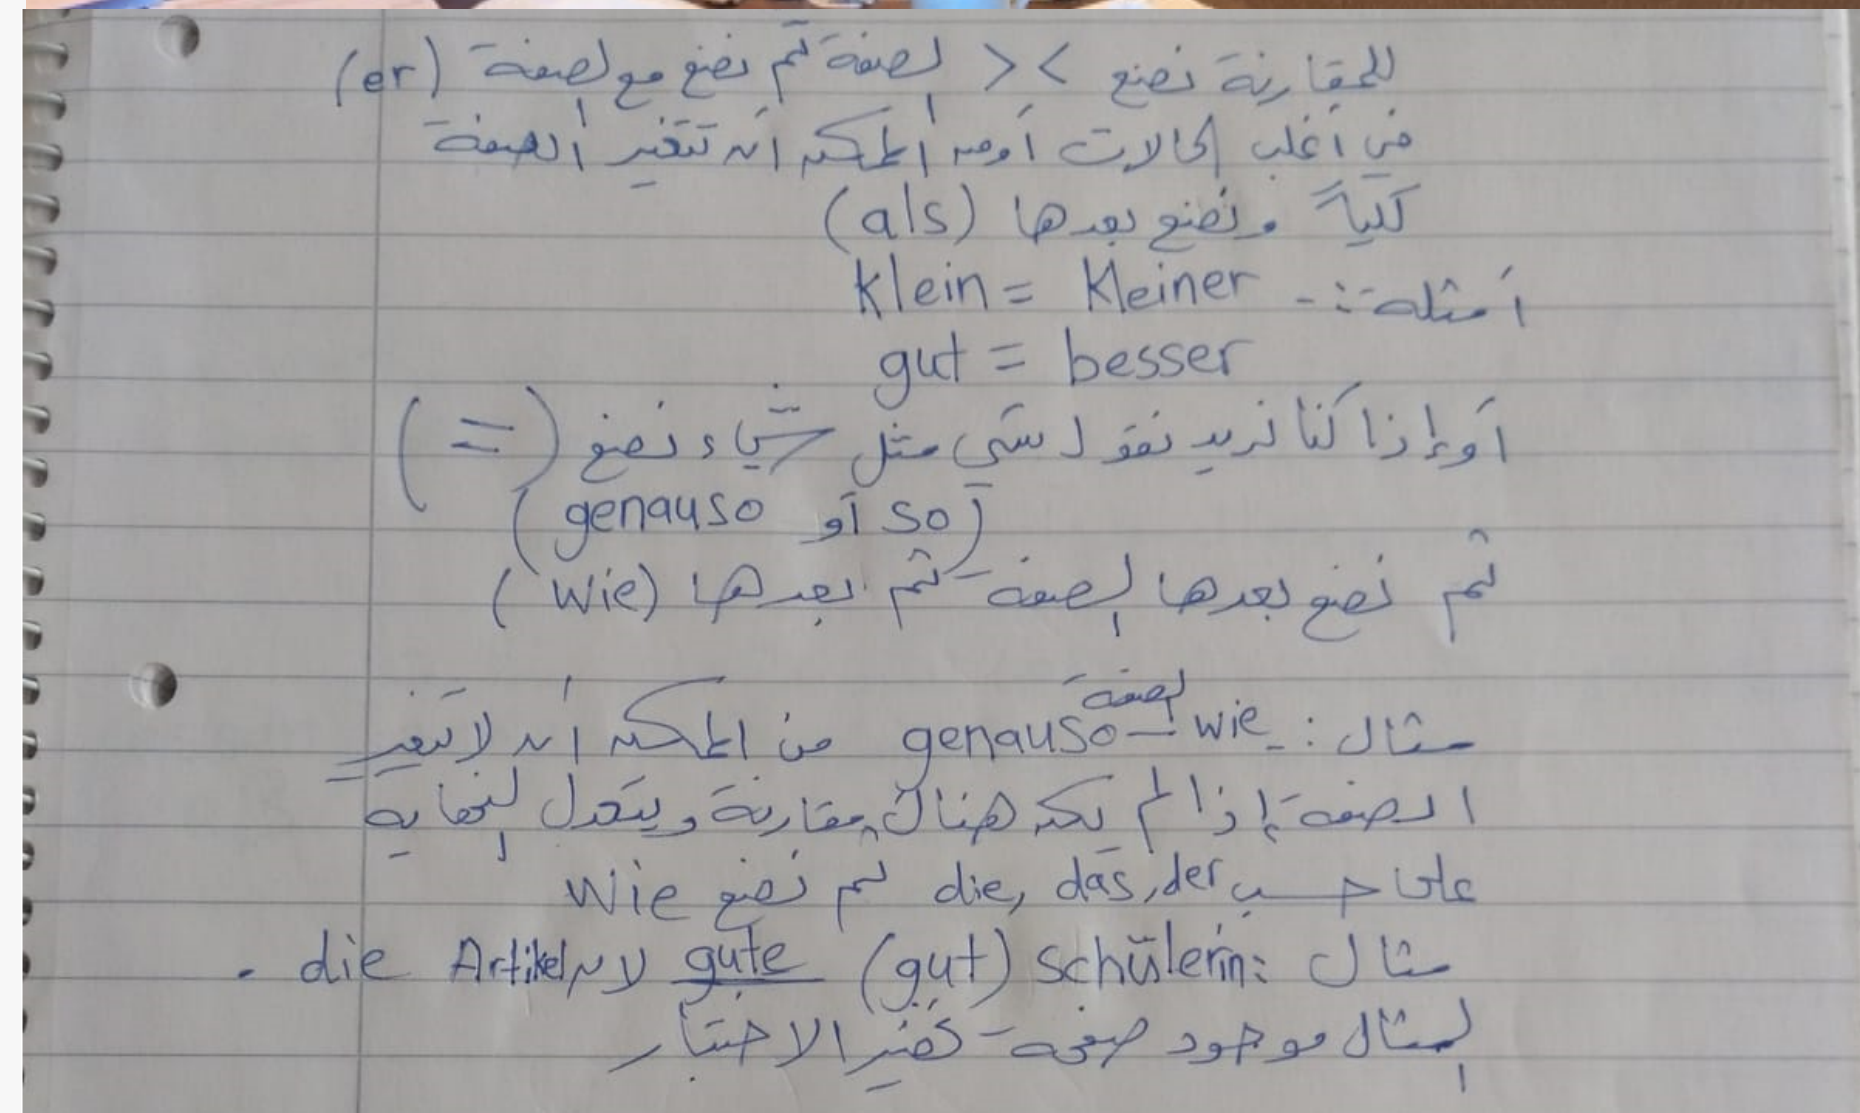 للمقارنة نضع > < الصفة ثم نضع مع الصفة (er)
في أغلب الحالات أو من الممكن أن تتغير الصفة
كلياً ونضع بعدها (als)
أمثلة :- klein = kleiner
gut = besser
أو إذا كنا نريد نقول شي مثل شيء نضع (=)
(so أو genauso)
ثم نضع بعدها الصفة ثم بعدها (wie)
الصفة
مثال : genauso – wie من الممكن أن لا تتغير
الصفة إذا لم يكن هناك مقارنة ويتعدل النهاية
على حسب die, das, der ثم نضع wie
مثال : schülerin (gut) gute لان Artikel die .
المثال موجود صفحة الاختبار